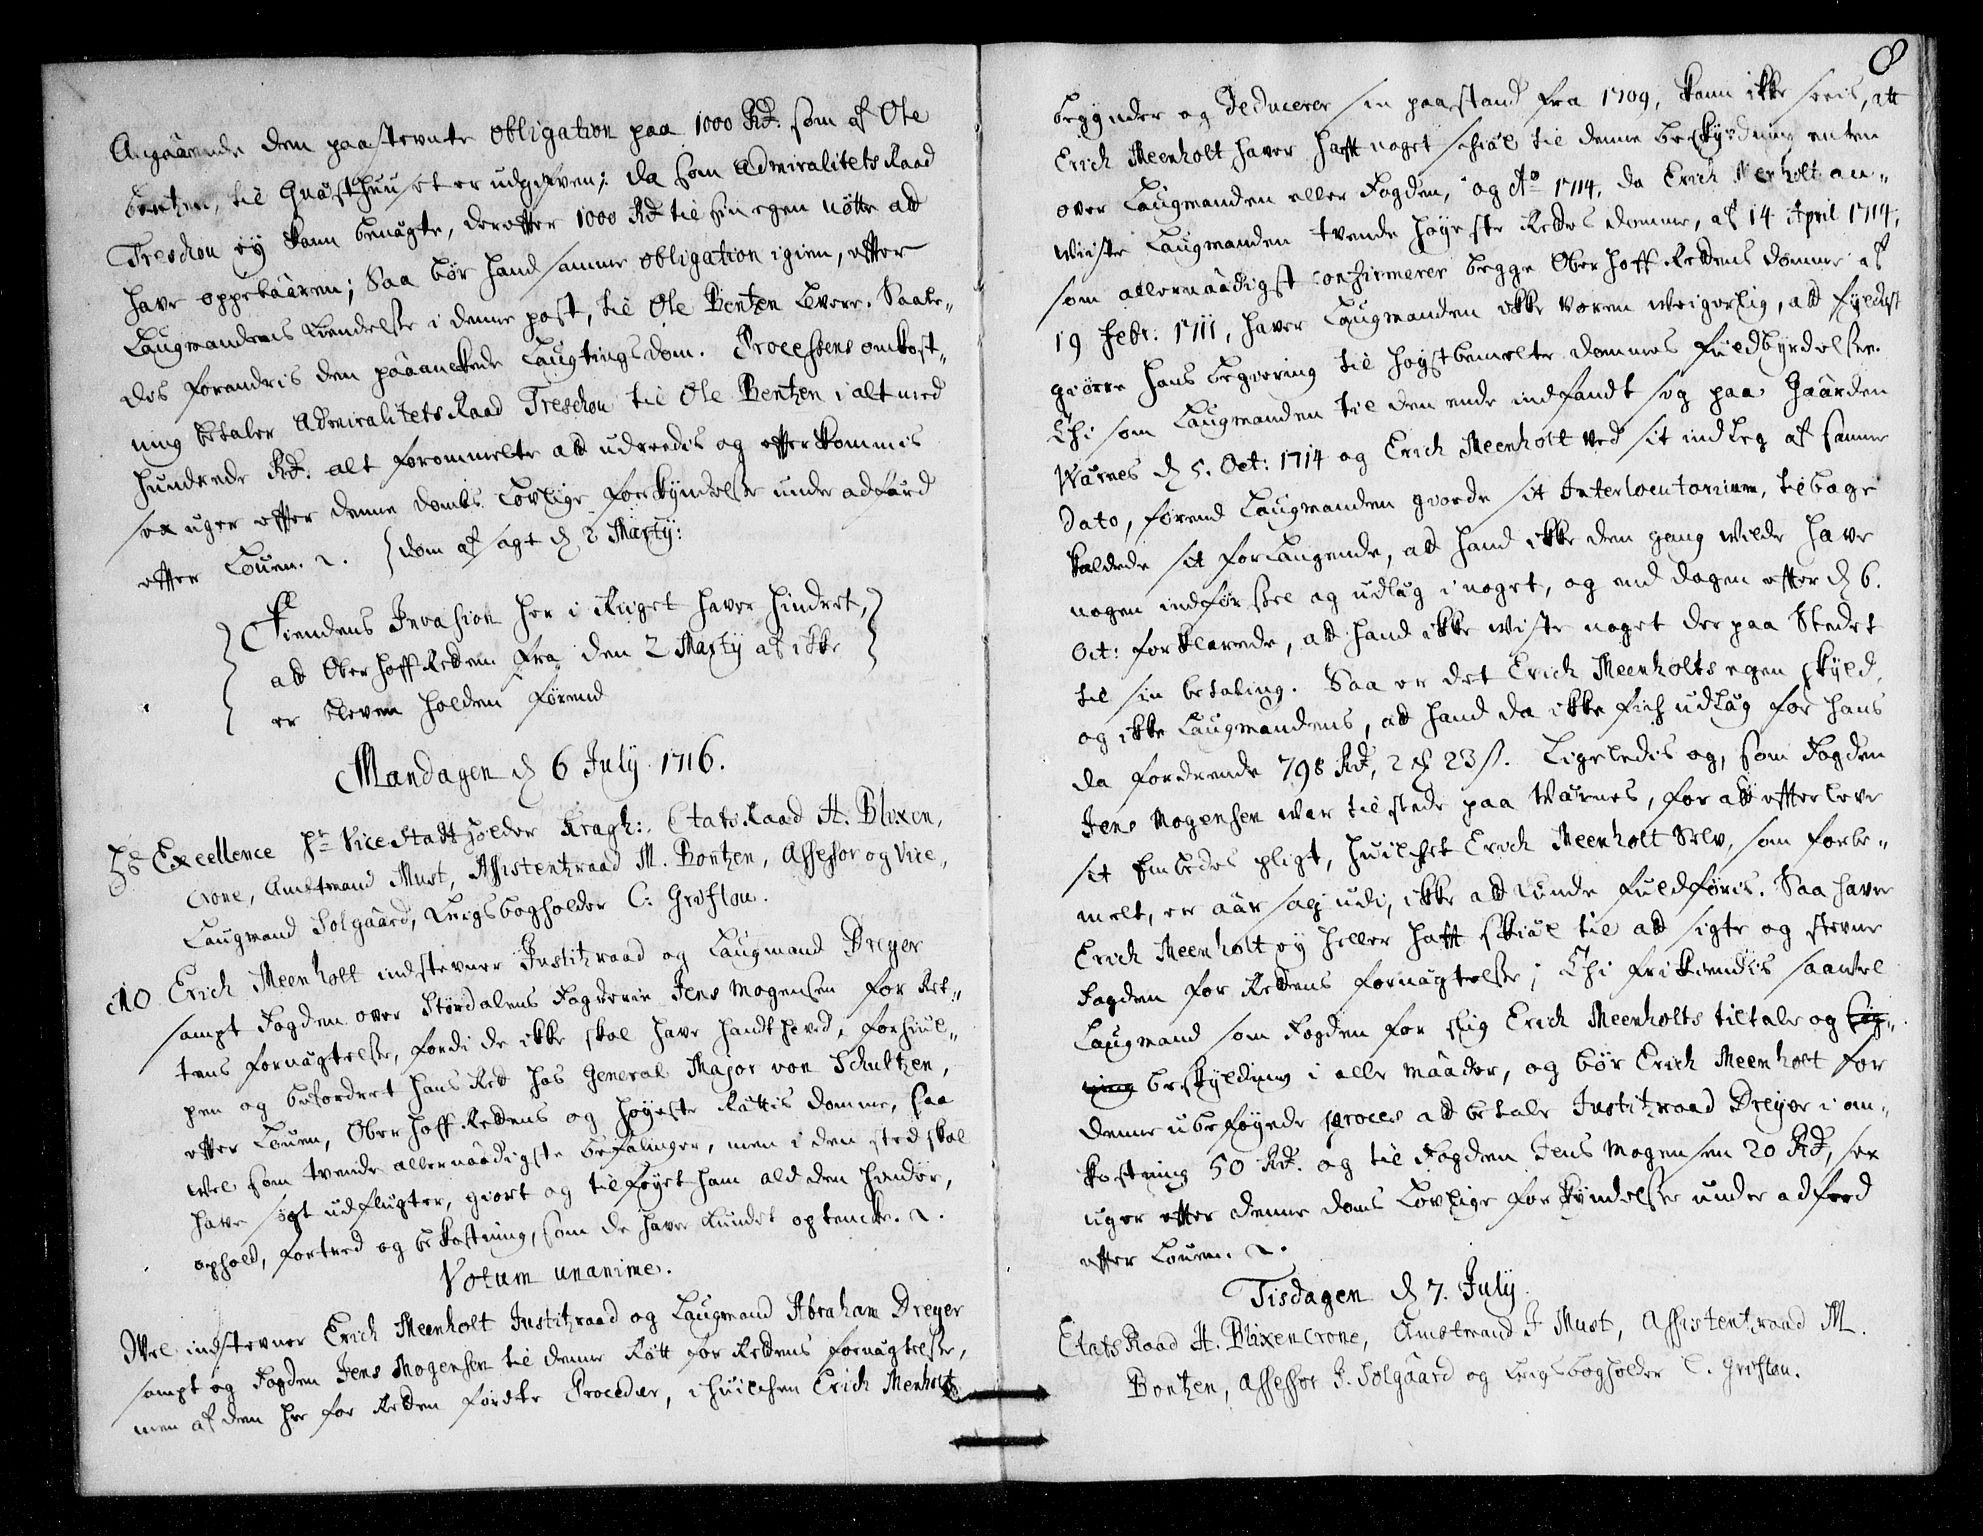 Angaaende den paastevnte obligation paa 1000 Rd. som af Ole
Bentzen, til Quæsthuuset er udgifven; da som Admiralitets Raad
Treschou ey kann benægte, derefter 1000 Rd til sin egen nötte att
have oppebaaren; Saa bör hand samme obligation igien, efter
Laugmandens Kiendelse i denne post, til Ole Bentzen levere. Saale„
des forandris den paaanckede Laugtings dom. Processens omkost„
ning betaler Admiralitets Raad Treschou til Ole Bentzen i alt med
hundrede Rd. alt forommelte att udreedis og efterkommis
sex uger efter denne domb. Lovlige forkyndelse under adfærd
efter Louen. dom afsagt d 2 Marty:
Fiendens Invasion her i Riiget haver hindret,
att Ober Hoff Retten fra den 2 Marty af ikke
er bleven holden förend
Mandagen d 6 July 1716.
Hs Excellence Hr Vice Stadtholder Kragh:, Etats Raad H. Blixen„
crone, Amtmand Must, Assistentzraad M. Bentzen, Assessor og Vice„
Laugmand Solgaard, Krigsbogholder C: Gröflou.
No Erich Meenholt indstevner Justitzraad og Laugmand Dreyer
sampt Fogden over Stördalens Fogderie Jens Mogensen for Ret„
tens fornægtelse, fordi de ikke skal have handthæved, forhiul„
pen og befordret hans Ret hos General Major von Schultzen,
efter Louen, Ober Hoff Rettens og Höyeste Rættis domme, saa
vel som tvende allernaadigste befalinger, men i den sted skal
have sögt udflugter, giort og tilföyet ham ald den hinder,
ophold, fortred og bekostning, som de haver kundet optencke.
Votum unanime.
Vel indstevner Erich Meenholt Justitzraad og Laugmand Abraham Dreyer
sampt og Fogden Jens Mogensen til denne Rätt for Rettens fornægtelse,
men af den her for Retten förte Procedur, i huilchen Erich Menholt
8
begynder og deducerer sin paastand fra 1709, kann ikke sees, att
Erich Meenholt haver hafft noget skiæl til denne beskyldning enten
over Laugmanden eller Fogden, og Ao 1714, da Erich Menholt an„
viste Laugmanden tvende Höyeste Rettes domme, af 14 April 1714,
som allernaadigst confirmerer begge Ober Hoff Rettens domme af
19 Febr: 1711, haver Laugmanden ikke voren veigerlig, att fyldest
giörre hans begiering til höystbemelte dommes fuldbyrdelse.
Thi som Laugmanden til den ende indfandt sig paa Gaarden
Værnes d 5. Oct: 1714 og Erich Meenholt ved sit indleg af samme
dato, förend Laugmanden giorde sit Interlocutorium, tilbage
kaldede sit forlangende, att hand ikke den gang vilde have
nogen indförsel og udlæg i noget, og end dagen efter d 6.
Oct: forklarede, att hand ikke viste noget der paa Stedet
til sin betaling. Saa er det Erich Meenholts egen skyld,
og ikke Laugmandens, att hand da ikke fich udlæg for hans
da fordrende 798 Rd, 2 23 s. Ligeledis og, som Fogden
Jens Mogensen var tilstede paa Værnes, for att efterleve
sit Embedes pligt, huilchet Erich Meenholt Selv, som forbe„
melt, er aarsag udi, ikke att kunde fuldföris. Saa haver
Erich Meenholt ey heller hafft skiæl til att sigte og stevne
Fogden for Rettens fornægtelse; Thi frikiendis saavel
Laugmand som Fogden for slig Erich Meenholts tiltale og
beskylding i alle maader, og bör Erich Meenholt for
denne ubeföyede proces att betale Justitzraad Dreyer i om„
kostning 50 Rd. og til Fogden Jens Mogensen 20 Rd, sex
uger efter denne doms Lovlige forkyndelse under adferd
efter Louen.
Tisdagen d 7. July.
Etats Raad H. Blixencrone, Amtmand J Must, Assistentzraad M.
Bentzen, Assessor J. Solgaard og Krigsbogholder C. Gröflou.